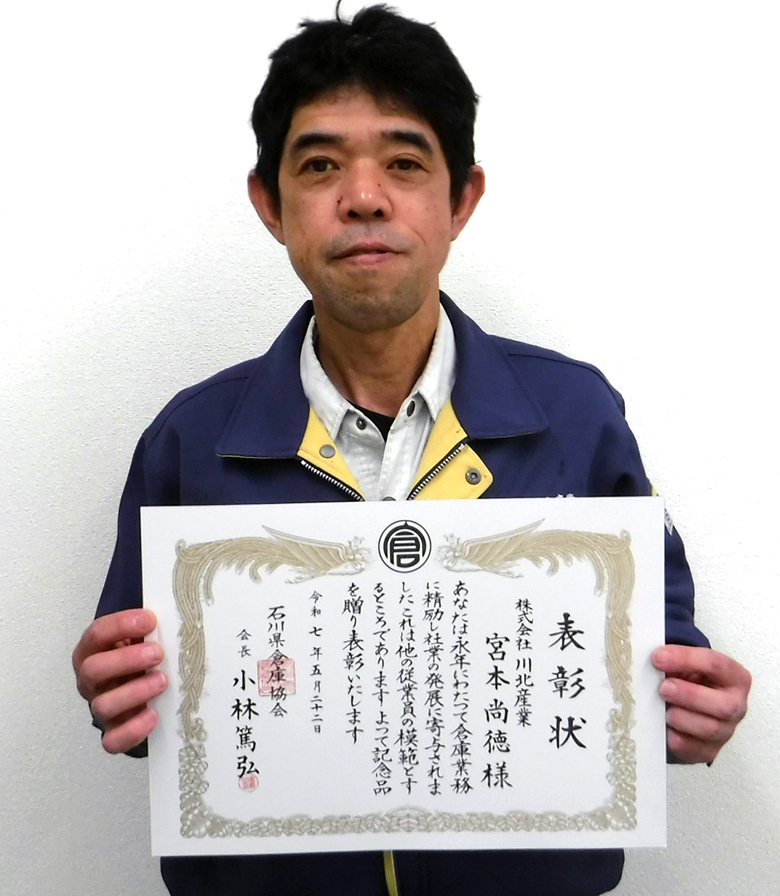 倉
表彰状
株式会社 川北産業
宮本尚徳 様
あなたは永年にわたって倉庫業務
に精励し社業の発展に寄与されま
したこれは他の従業員の模範とす
るところであります よって記念品
を贈り表彰いたします
令和 七 年 五 月 二十二 日
石川県倉庫協会
会長 小林篤弘